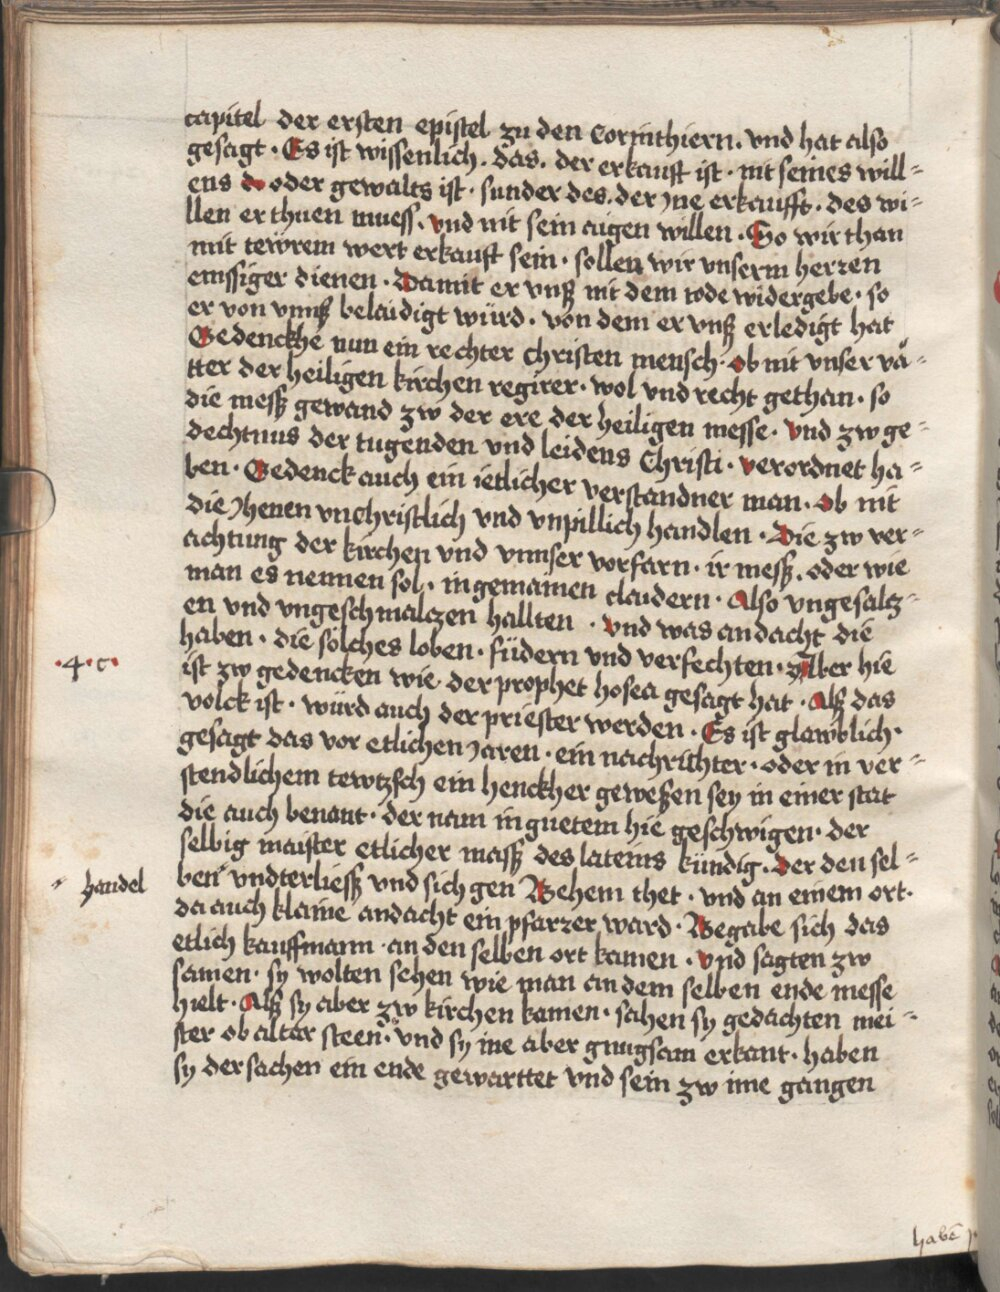 capitel der ersten epistel zu den Corinthiern. vnd hat also
gesagt. Es ist wissenlich. das. der erkauft ist. nit seines will=
ens oder gewalts ist. sunder des. der yne erkaufft. des wi=
llen er thuen muess. vnd nit sein aigen willen. So wir than
mit tewrem wert erkauft sein. sollen wir vnserm herren
emssiger dienen. Damit er vnß nit dem tode widergebe. so
er von vnnß belaidigt würd. von dem er vnß erledigt hat
Gedenckhe nun ein rechter christen mensch. ob nit vnser vä=
tter der heiligen kirchen regirer. wol vnd recht gethan. so
die meß gewand zw der ere der heiligen messe. vnd zw ge=
dechtnus der tugenden vnd leidens Christi. verordnet ha=
ben. Gedenck auch ein ietlicher verstandner man. ob nit
die yhenen vnchristlich vnd vnpillich handlen. Die zw ver=
achtung der kirchen vnd vnnser vorfarn. ir meß. oder wie
man es nennen sol. in gemainen claidern. Also vngesalcz=
en vnd vngeschmalczen hallten. vnd was andacht die
haben. die solches loben. füdern vnd verfechten. Aber hie
·4·c·
ist zw gedencken wie der prophet hosea gesagt hat. Alß das
volck ist. würd auch der priester werden. Es ist glawblich.
gesagt das vor etlichen yaren. ein nachrichter. oder in ver=
stendlichem tewtzsch ein henckher geweßen sey in einer stat
die auch benant. der nam in guetem hie geschwigen. der
selbig maister etlicher maß des lateins kündig. der den sel=
handel
ben vndterließ vnd sich gen Behem thet. vnd an einem ort.
da auch klaine andacht ein pfarrer ward. Begabe sich das
etlich kauffmann. an den selben ort kamen. vnd sagten zw
samen. sy wolten sehen wie man an dem selben ende messe
hielt. Alß sy aber zw kirchen kamen. sahen sy gedachten mei=
ster ob altar steen. vnd sy ine aber gnugsam erkant. haben
sy der sachen ein ende gewarttet vnd sein zw ime gangen
habē